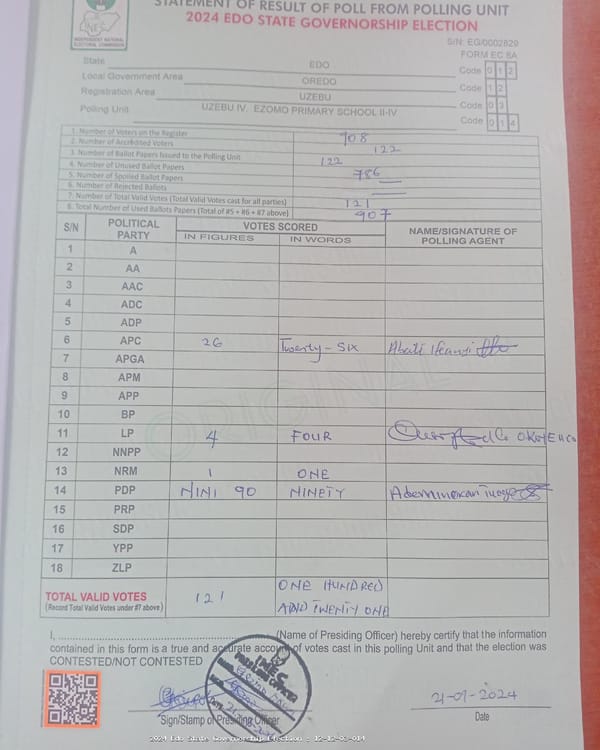 STATEMENT OF RESULT OF POLL FROM POLLING UNIT
2024 EDO STATE GOVERNORSHIP ELECTION
INEC
INDEPENDENT NATIONAL ELECTORAL COMMISSION
S/N: EG/0002829
FORM EC 8A
State EDO Code 0 1 2
Local Government Area OREDO Code 1 2
Registration Area UZEBU Code 0 3
Polling Unit UZEBU IV. EZOMO PRIMARY SCHOOL II-IV Code 0 1 4
1. Number of Voters on the Register 908
2. Number of Accredited Voters 122
3. Number of Ballot Papers Issued to the Polling Unit 122
4. Number of Unused Ballot Papers 786
5. Number of Spoiled Ballot Papers —
6. Number of Rejected Ballots —
7. Number of Total Valid Votes (Total Valid Votes cast for all parties) 121
8. Total Number of Used Ballots Papers (Total of #5 + #6 + #7 above) 907
S/N POLITICAL PARTY VOTES SCORED NAME/SIGNATURE OF POLLING AGENT
IN FIGURES IN WORDS
1 A
2 AA
3 AAC
4 ADC
5 ADP
6 APC 26 Twenty-SIX Abali Ifeanyi
7 APGA
8 APM
9 APP
10 BP
11 LP 4 FOUR
12 NNPP
13 NRM 1 ONE
14 PDP NINI 90 NINETY
15 PRP
16 SDP
17 YPP
18 ZLP
ORIGINAL
TOTAL VALID VOTES 121 ONE HUNDRED
(Record Total Valid Votes under #7 above) AND TWENTY ONE
I, (Name of Presiding Officer) hereby certify that the information
contained in this form is a true and accurate account of votes cast in this polling Unit and that the election was
CONTESTED/NOT CONTESTED
INEC
PRESIDING OFFICER
21-09-2024
Sign/Stamp of Presiding Officer Date
2024 Edo State Governorship Election : 12-12-03-014